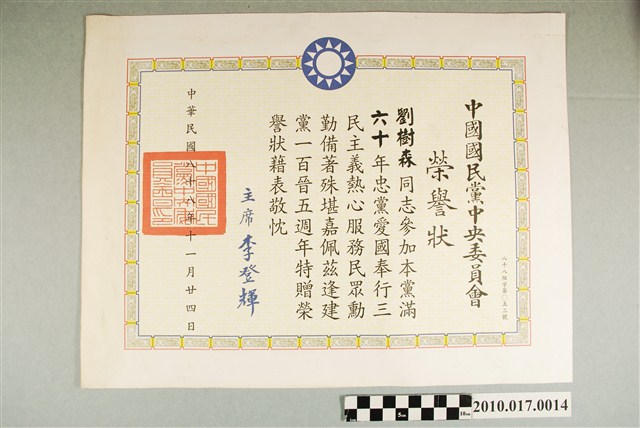 中國國民黨中央委員會
榮譽狀
劉樹森同志參加本黨滿
六十年忠黨愛國奉行三
民主義熱心服務民眾勳
勤備著殊堪嘉佩茲逢建
黨一百晉五週年特贈榮
譽狀藉表敬忱
主席 李登輝
中華民國八十八年十一月廿四日
中國國民
黨中央委
員會印
5cm
10cm
2010.017.0014